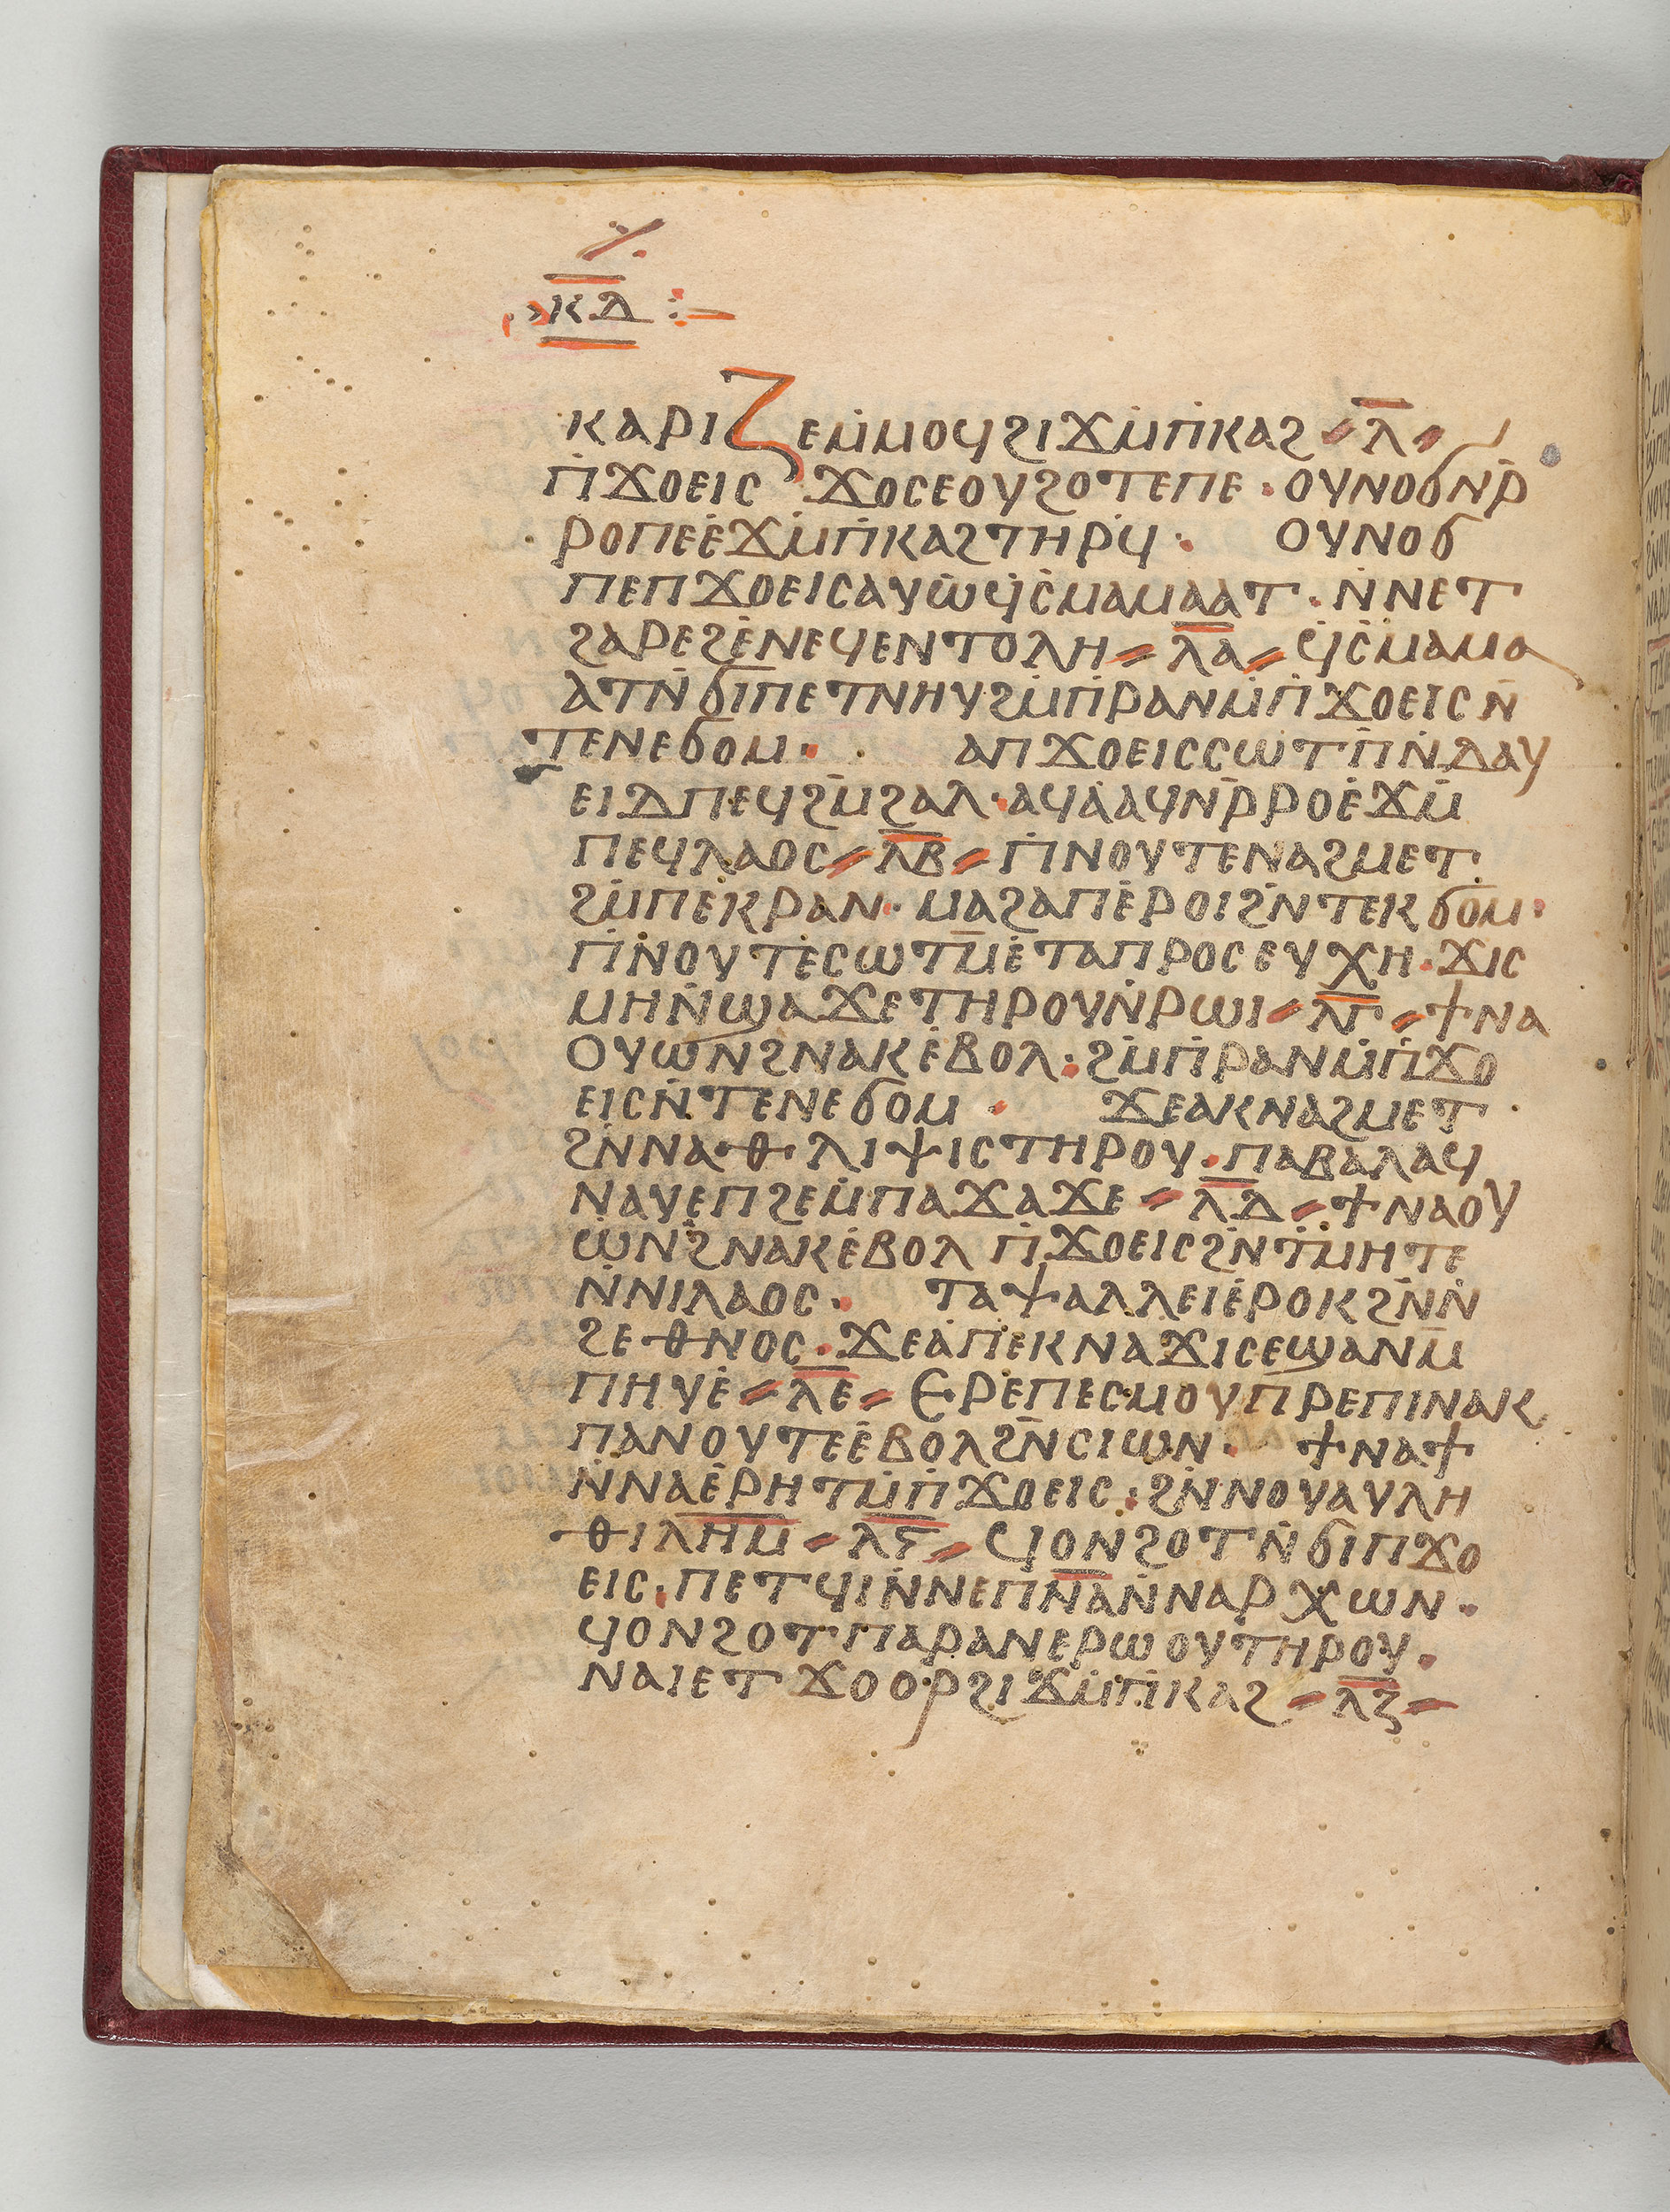 ⲕⲇ
ⲕⲁⲣⲓⲍⲉⲙ̇ⲙⲟϥϩⲓϫⲙ̇ⲡ̇ⲕⲁϩ ⲗ̅
ⲡ̇ϫⲟⲉⲓⲥ ϫⲟⲥⲉⲟⲩϩⲟⲧⲉⲡⲉ · ⲟⲩⲛⲟϭⲛ̄ⲣ̄
ⲣⲟⲡⲉⲉ̇ϫⲙ̇ⲡ̇ⲕⲁϩⲧⲏⲣϥ̇ · ⲟⲩⲛⲟϭ
ⲡⲉⲡϫⲟⲉⲓⲥⲁⲩⲱϥ̇ⲥ̇ⲙⲁⲙⲁⲁⲧ · ⲛ̇ⲛⲉⲧ
ϩⲁⲣⲉϩⲉ̇ⲛⲉϥⲉⲛⲧⲟⲗⲏ ⲗ̅ⲁ̅ ϥ̇ⲥ̇ⲙⲁⲙⲁ
ⲁⲧⲛ̇ϭⲓⲡⲉⲧⲛⲏⲩϩⲙ̇ⲡ̇ⲣⲁⲛⲙ̇ⲡ̇ϫⲟⲉⲓⲥⲛ̄
ⲧⲉⲛⲉϭⲟⲙ · ⲁⲡϫⲟⲉⲓⲥⲥⲱⲧⲡ̄ⲛ̇ⲇⲁⲩ
ⲉⲓⲇⲡⲉϥϩⲙ̄ϩⲁⲗ · ⲁϥⲁ̇ⲁϥⲛ̄ⲣ̄ⲣⲟⲉ̇ϫⲙ̄
ⲡⲉϥⲗⲁⲟⲥ ⲗ̅ⲃ̅ ⲡ̇ⲛⲟⲩⲧⲉⲛⲁϩⲙⲉⲧ
ϩⲙ̇ⲡⲉⲕⲣⲁⲛ · ⲙⲁϩⲁⲡⲉ̇ⲣⲟⲓϩⲛ̇ⲧⲉⲕϭⲟⲙ ·
ⲡ̇ⲛⲟⲩⲧⲉⲥⲱⲧⲙ̄ⲉ̇ⲧⲁⲡⲣⲟⲥⲉⲩⲭⲏ · ϫⲓⲥ
ⲙⲏⲛ̇ϣⲁϫⲉⲧⲏⲣⲟⲩⲛ̇ⲣⲱⲓ ⲗ̅ⲅ̅ ϯⲛⲁ
ⲟⲩⲱⲛϩⲛⲁⲕⲉ̇ⲃⲟⲗ : ϩⲙ̇ⲡ̇ⲣⲁⲛⲙ̇ⲡ̇ϫⲟ
ⲉⲓⲥⲛ̇ⲧⲉⲛⲉϭⲟⲙ · ϫⲉⲁⲕⲛⲁϩⲙⲉⲧ ·
ϩⲛ̇ⲛⲁⲑⲗⲓⲯⲓⲥⲧⲏⲣⲟⲩ · ⲡⲁⲃⲁⲗⲁϥ
ⲛⲁⲩⲉⲡϩⲉⲙ̇ⲡⲁϫⲁϫⲉ ⲗ̅ⲇ̅ ϯⲛⲁⲟⲩ
ⲱⲛϩⲛⲁⲕⲉ̇ⲃⲟⲗ ⲡ̇ϫⲟⲉⲓⲥϩⲛ̇ⲧⲙ̄ⲏⲧⲉ
ⲛ̇ⲛⲓⲗⲁⲟⲥ · ⲧⲁⲯⲁⲗⲗⲉⲓⲉ̇ⲣⲟⲕϩⲛ̄ⲛ̇
ϩⲉⲑⲛⲟⲥ · ϫⲉⲁ̇ⲡⲉⲕⲛⲁϫⲓⲥⲉϣⲁⲛⲙ̄
ⲡⲏⲩⲉ̇ ⲗ̅ⲉ̅ ⲉⲣⲉⲡⲉⲥⲙⲟⲩⲡⲣⲉⲡⲓⲛⲁⲕ
ⲡⲁⲛⲟⲩⲧⲉⲉ̇ⲃⲟⲗϩⲛ̄ⲥⲓⲱⲛ · ϯⲛⲁϯ
ⲛ̇ⲛⲁⲉ̇ⲣⲏⲧⲙ̇ⲡ̇ϫⲟⲉⲓⲥ : ϩⲛ̇ⲛⲟⲩⲁⲩⲗⲏ
ⲑⲓⲗ̅ⲏ̅ⲙ̅ ⲗ̅ⲋ̅ ϥⲟⲛϩⲟⲧⲛ̇ϭⲓⲡϫⲟ
ⲉⲓⲥ · ⲡⲉⲧϥⲓⲛ̇ⲛⲉⲡⲛ̅ⲁ̅ⲛ̇ⲛⲁⲣⲭⲱⲛ ·
ϥⲟⲛϩⲟⲧⲡⲁⲣⲁⲛⲉⲣⲱⲟⲩⲧⲏⲣⲟⲩ ·
ⲛⲁⲓⲉⲧϫⲟⲟⲣϩⲓϫⲙ̇ⲡ̇ⲕⲁϩ ⲗ̅ⲍ̅